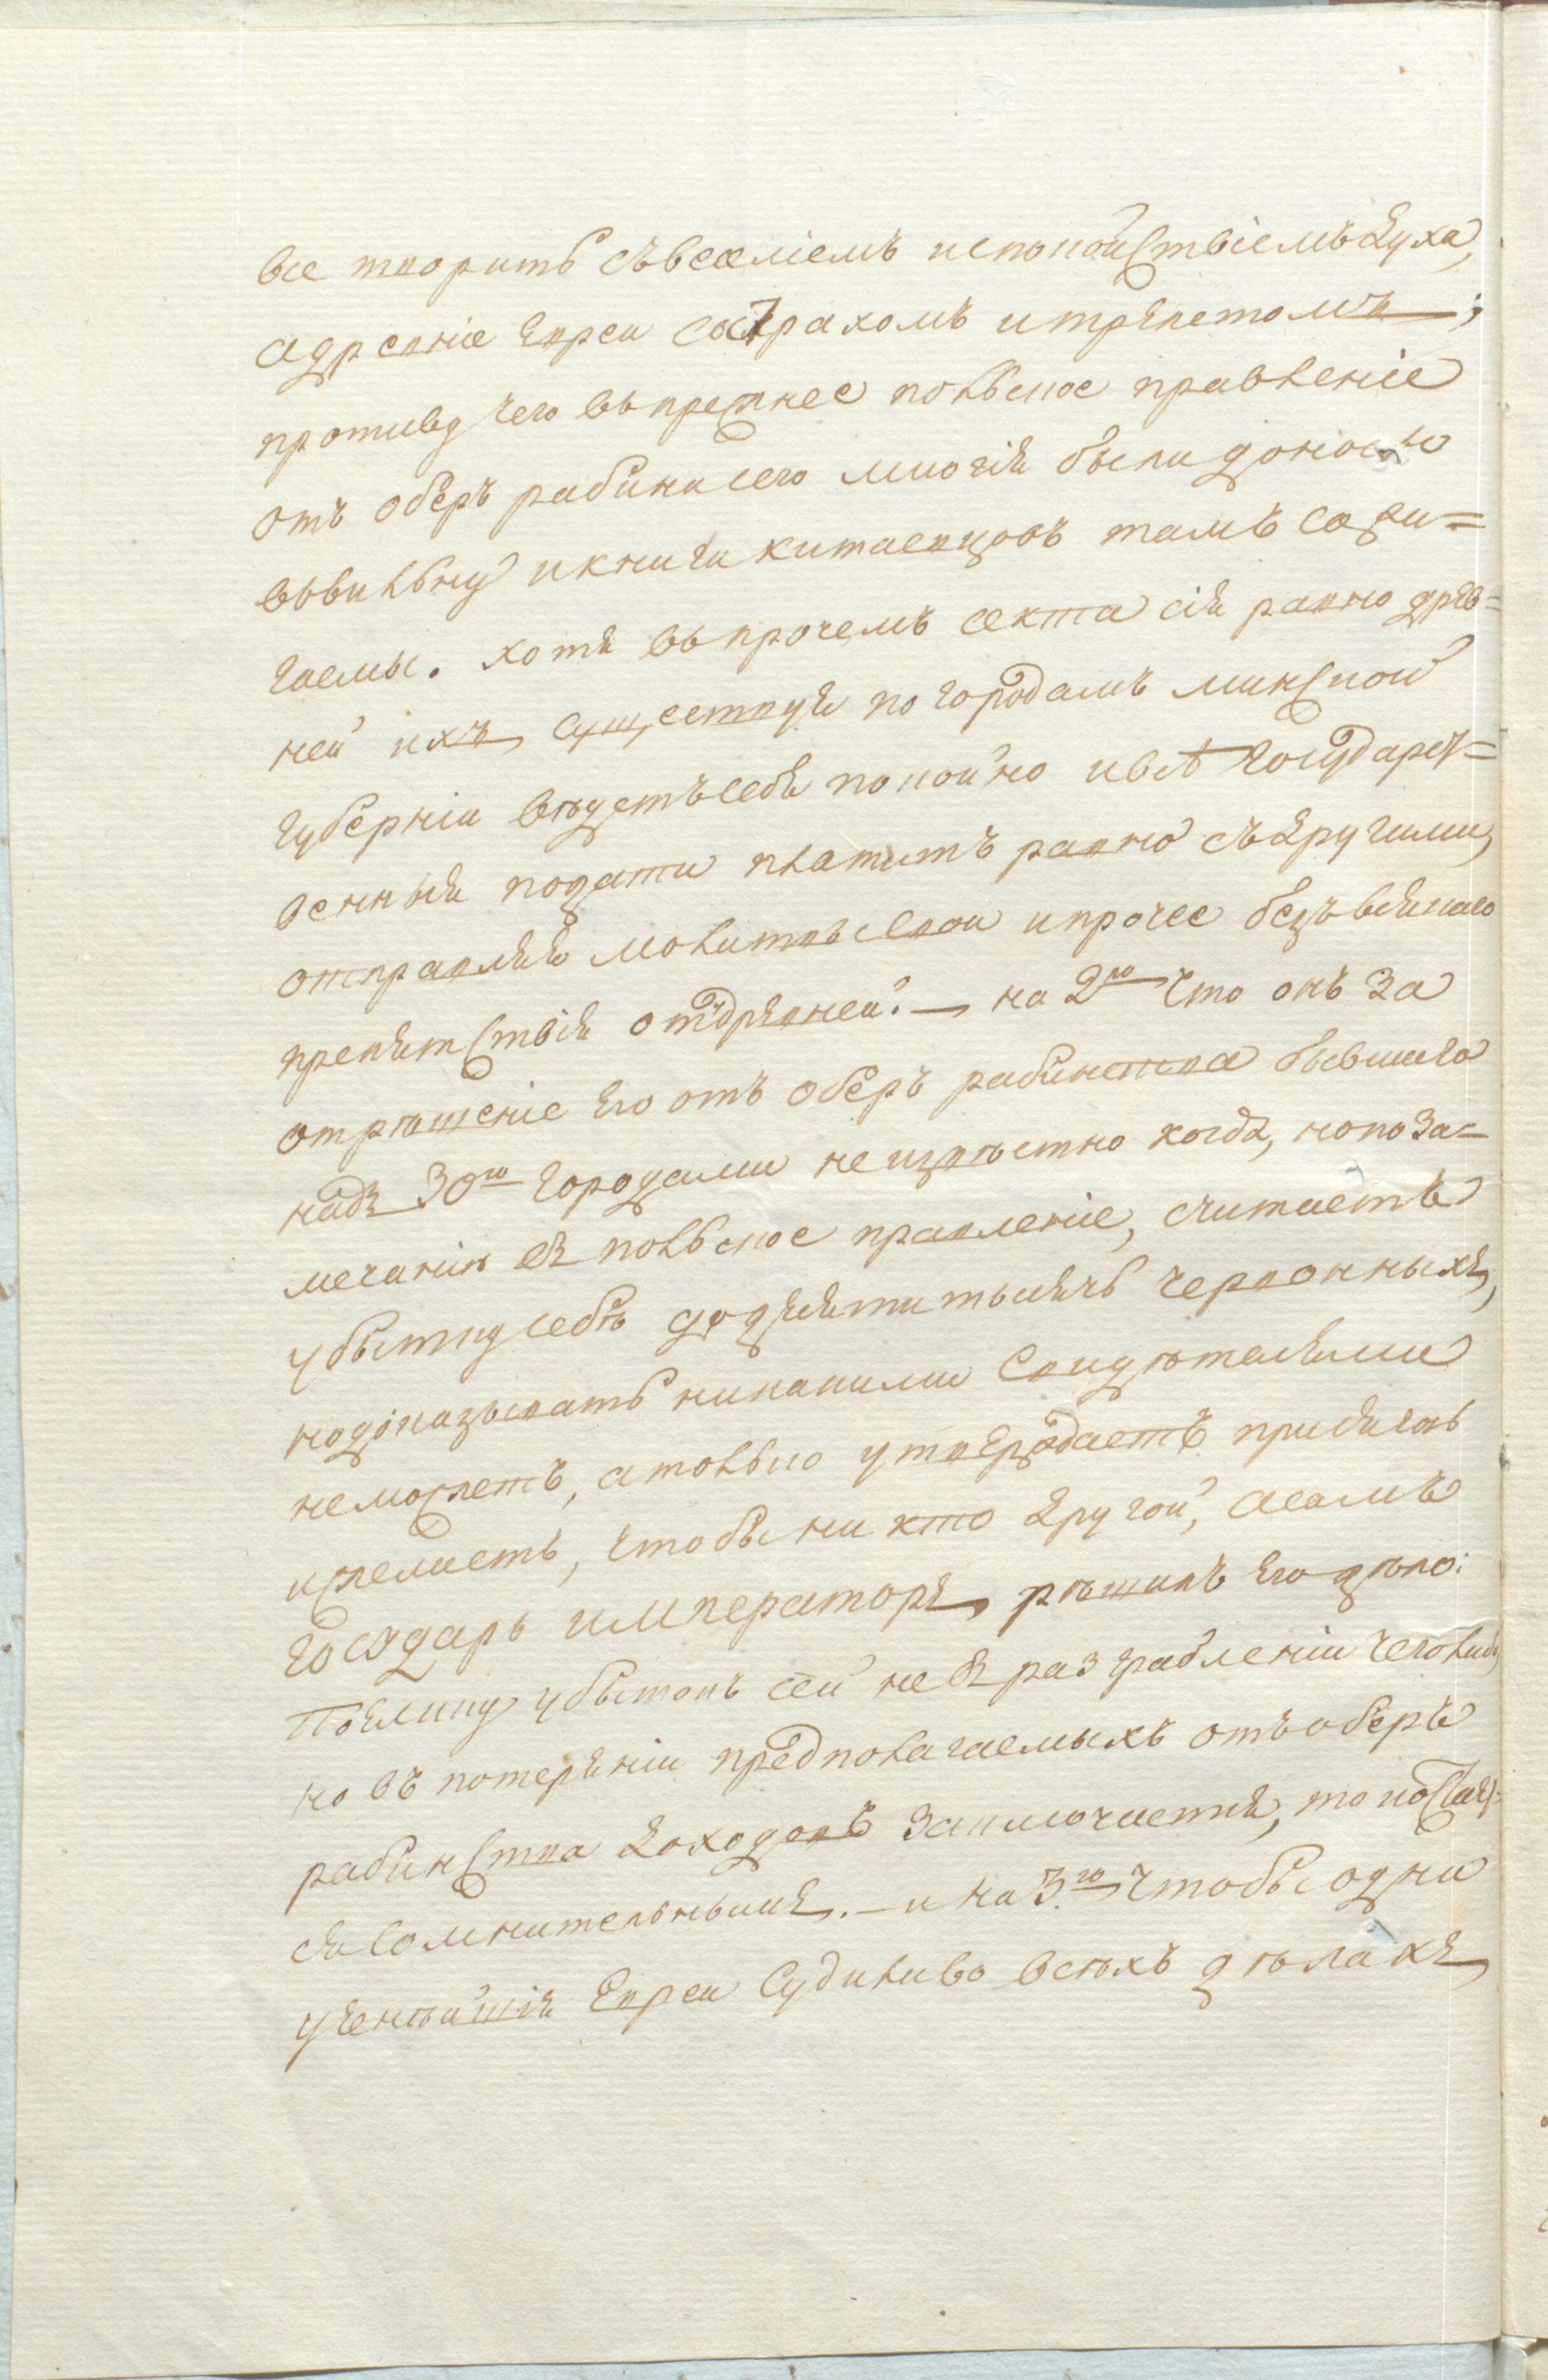 все творитъ съвеселіемъ испокойствіемъ духа,
адревніе Евреи сострахомъ итрепетомъ;
противу чего впрежнее польское правленіе
отъ оберъ рабина сего многія были доносы
ввильну икниги китаевцовъ тамъ сожи=
гаемы. хотя впрочемъ секта сія равно древ=
ней ихъ существуя погородамъ минской
губерніи ведетъ себя покойно ивсѣ государст=
венныя подати платитъ равно съдругими,
отправляя молитвы свои ипрочее безъ всякаго
препятствія отдревней. — на 2е что онъ за
отрѣшеніе его отъ оберъ рабинства бывшаго
надъ 30ю городами неизвѣстно когда, нопоза=
мечанію въ польское правленіе, считаетъ
убытку себѣ додесяти тысячь червонныхъ,
нодоказывать никакими свидѣтелями
неможетъ, атолько утверждаетъ присягою
ижелаетъ, чтобы никто другой, асамъ
государь императоръ рѣшилъ его дѣло:
Поелику убытокъ сей не въ разграбленіи чеголибо,
но въ потеряніи предполагаемыхъ отъ оберъ
рабинства доходовъ заключается, то иостает=
ся сомнительнымъ. — и на 3е чтобы одни
ученѣйшія Евреи судили во всѣхъ дѣлахъ